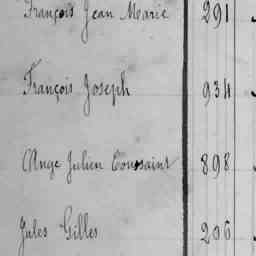 François Jean Marie 291
François Joseph 934
Ange Julien Toussaint 898
Jules Gilles 206